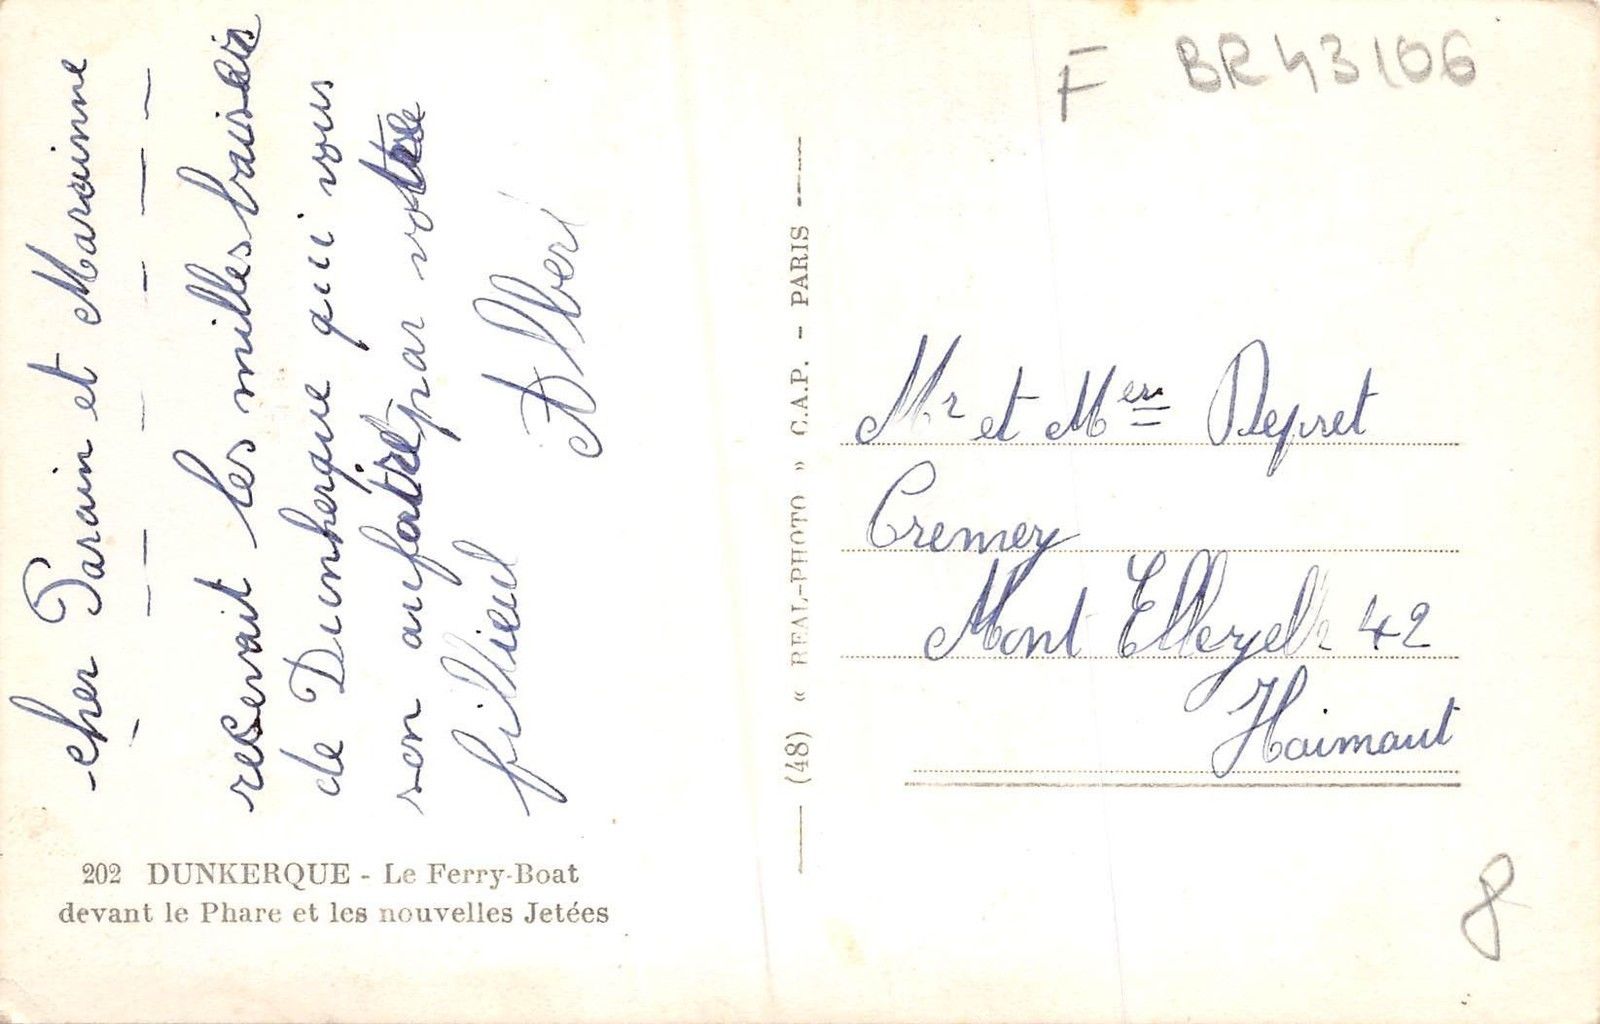 cher Parain et Marainne
resevait les milles baiseis
de Dunkerque qui vous
son aufert par votre
fillieul
Albert
202 DUNKERQUE - Le Ferry-Boat
devant le Phare et les nouvelles Jetées
(48) « REAL-PHOTO » C.A.P. - PARIS
F BR43106
Mr et Mer Depret
Cremer
Mont Ellezelle 42
Haimaut
8